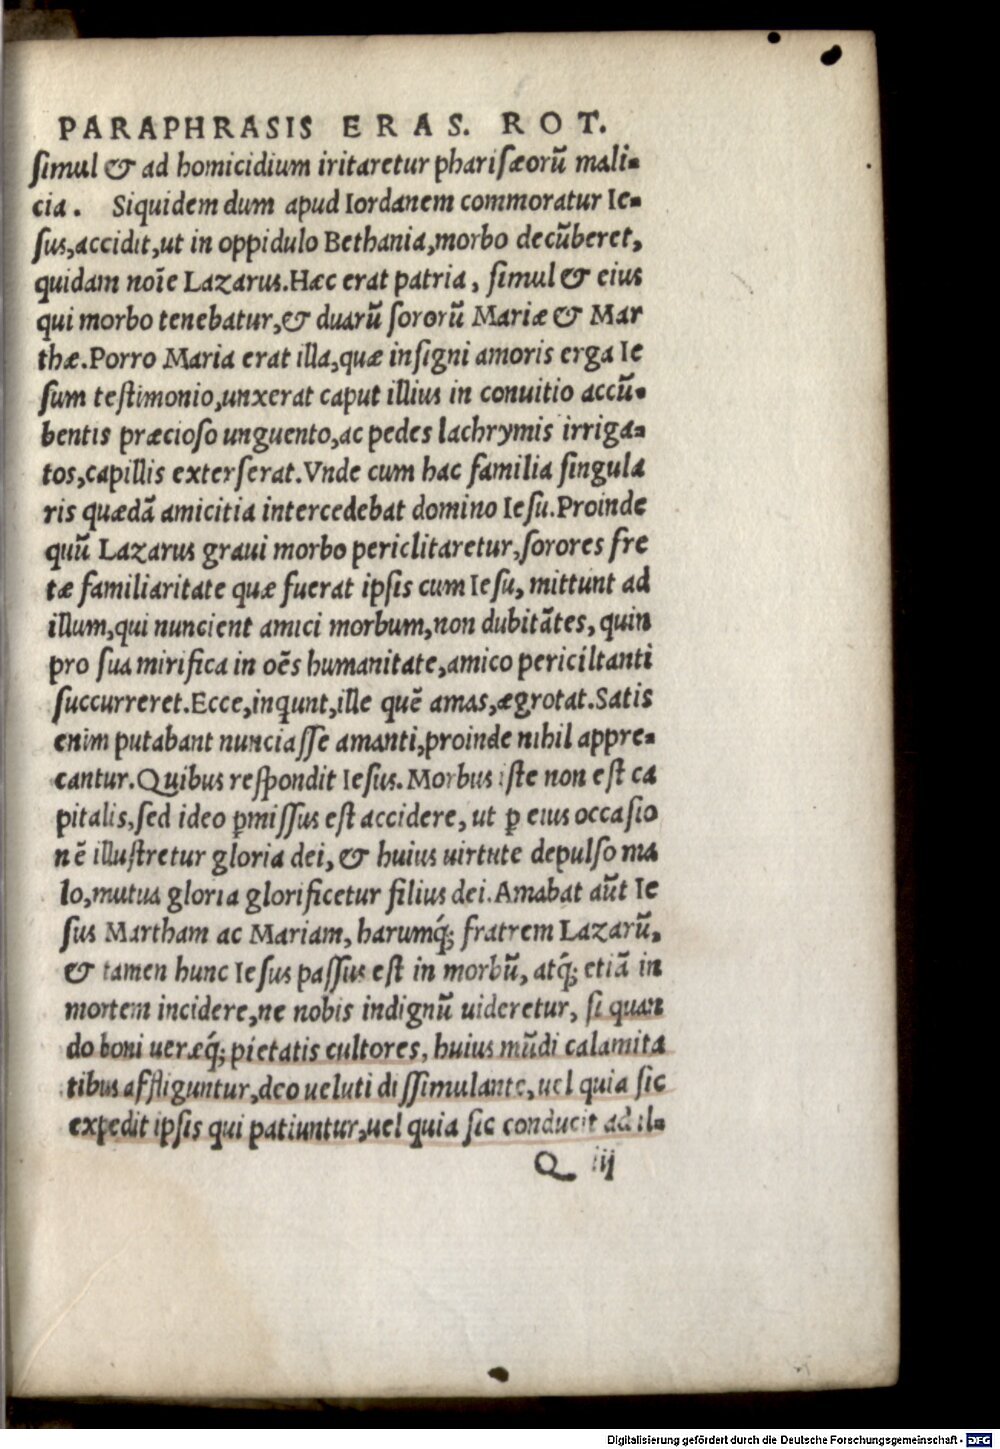 PARAPHRASIS ERAS. ROT.
ſimul & ad homicidium iritaretur phariſæorũ mali-
cia. Siquidem dum apud Iordanem commoratur Ie-
ſus,accidit,ut in oppidulo Bethania,morbo decũberet,
quidam noĩe Lazarus.Hæc erat patria, ſimul & eius
qui morbo tenebatur,& duarũ ſororũ Mariæ & Mar
thæ.Porro Maria erat illa,quæ inſigni amoris erga Ie
ſum teſtimonio,unxerat caput illius in conuitio accũ-
bentis præcioſo unguento,ac pedes lachrymis irriga-
tos,capillis exterſerat.Vnde cum hac familia ſingula
ris quædã amicitia intercedebat domino Ieſu.Proinde
quũ Lazarus graui morbo periclitaretur,ſorores fre
tæ familiaritate quæ fuerat ipſis cum Ieſu, mittunt ad
illum,qui nuncient amici morbum,non dubitãtes, quin
pro ſua mirifica in oẽs humanitate,amico periciltanti
ſuccurreret.Ecce,inqunt,ille quẽ amas,ægrotat.Satis
enim putabant nunciaſſe amanti,proinde nihil appre-
cantur.Quibus reſpondit Ieſus.Morbus iſte non eſt ca
pitalis,ſed ideo ꝑmiſſus eſt accidere, ut ꝑ eius occaſio
nẽ illuſtretur gloria dei, & huius uirtute depulſo ma
lo,mutua gloria glorificetur filius dei.Amabat aũt Ie
ſus Martham ac Mariam, harumq́; fratrem Lazarũ,
& tamen hunc Ieſus paſſus eſt in morbũ, atq́; etiã in
mortem incidere,ne nobis indignũ uideretur, ſi quan
do boni ueræq́; pietatis cultores, huius mũdi calamita
tibus affliguntur,deo ueluti diſſimulante,uel quia ſic
expedit ipſis qui patiuntur,uel quia ſic conducit ad il-
Q iij
Digitalisierung gefördert durch die Deutsche Forschungsgemeinschaft - DFG